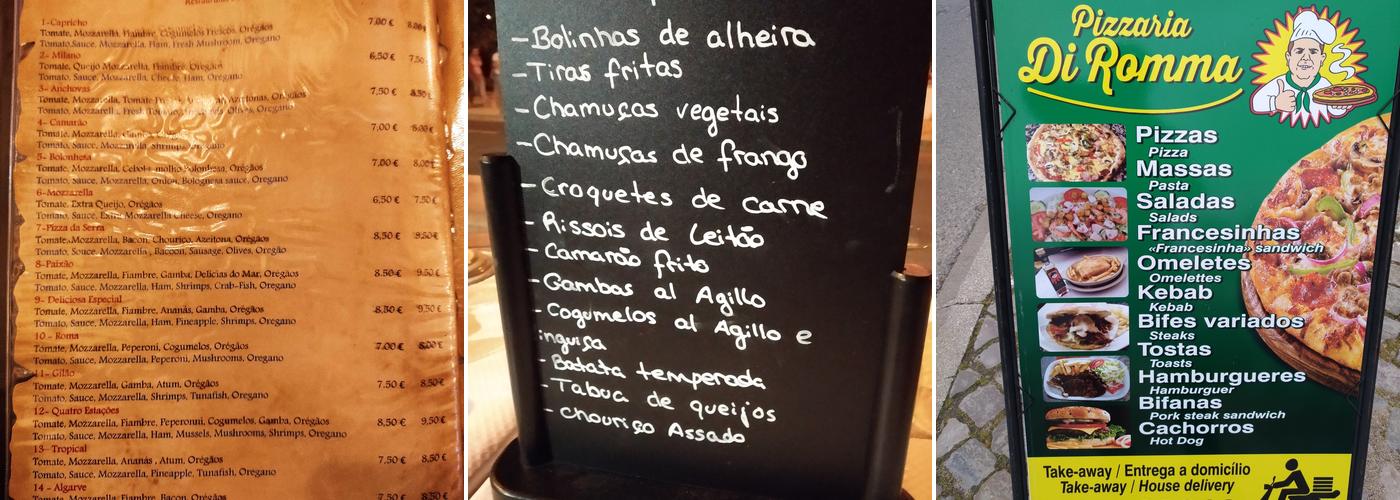 1-Capricho 7,00 € 8,00€
Tomate, Mozzarella, Fiambre, Cogumelos Frescos, Orégãos
Tomato,Sauce, Mozzarella, Ham, Fresh Mushroom, Oregano
2- Milano 6,50 € 7,50
Tomate, Queijo Mozzarella, Fiambre, Orégãos
Tomato, Sauce, Mozzarella, Cheese, Ham, Oregano
3- Anchovas 7,50 € 8,50€
Tomate, Mozzarella, Azeitonas, Orégãos
Tomato, Mozzarella, Fresh Olives, Oregano
4- Camarão 7,00 € 8,00€
Tomate, Mozzarella, Orégãos
Tomato, Sauce, Mozzarella, Shrimps, Oregano
5- Bolonhesa 7,00 € 8,00€
Tomate, Mozzarella, Cebola molho Bolonhesa, Orégãos
Tomato, Sauce, Mozzarella, Onion, Bolognesa sauce, Oregano
6-Mozzarella 6,50 € 7,50 €
Tomate, Extra Queijo, Orégãos
Tomato, Sauce, Extra Mozzarella Cheese, Oregano
7-Pizza da Serra 8,50 € 9,50€
Tomate,Mozzarella, Bacon, Chouriço, Azeitona, Orégãos
Tomato, Souce, Mozzarella , Bacoon, Sausage, Olives, Oregão
8-Paixão
Tomate, Mozzarella, Fiambre, Gamba, Delicias do Mar, Orégãos 8.50 € 9,50 €
Tomato, Sauce, Mozzarella, Ham, Shrimps, Crab-Fish, Oregano
9- Deliciosa Especial
Tomate, Mozzarella, Fiambre, Ananás, Gamba, Orégãos 8,50 € 9,50€
Tomato, Sauce, Mozzarella, Ham, Pineapple, Shrimps, Oregano
10 - Roma
Tomate, Mozzarella, Peperoni, Cogumelos, Orégãos 7.00 € 8,00 €
Tomato, Sauce, Mozzarella, Peperoni, Mushrooms, Oregano
11- Gilão
Tomate, Mozzarella, Gamba, Atum, Orégãos 7.50 € 8,50€
Tomato, Sauce, Mozzarella, Shrimps, Tunafish, Oregano
12- Quatro Estações
Tomate, Mozzarella, Fiambre, Peperonni, Cogumelos, Gamba, Orégãos 8,50 € 9,50€
Tomato, Sauce, Mozzarella, Ham, Mussels, Mushrooms, Shrimps, Oregano
13- Tropical
Tomate, Mozzarella, Ananás , Atum, Orégãos 7.50 € 8,50 €
Tomato, Sauce, Mozzarella, Pineapple, Tunafish, Oregano
14 - Algarve
Tomate, Mozzarella, Fiambre, Bacon, Orégãos 7,50 € 8,50€
-Bolinhas de alheira
-Tiras fritas
-Chamuças vegetais
-Chamuças de frango
-Croquetes de carne
-Rissois de Leitão
-Camarão frito
-Gambas al Agillo
-Cogumelos al Agillo e
inguisa
-Batata temperada
-Tabua de queijos
-Chouriço Assado
Pizzaria
Di Romma
Pizzas
Pizza
Massas
Pasta
Saladas
Salads
Francesinhas
«Francesinha» sandwich
Omeletes
Omelettes
Kebab
Kebab
Bifes variados
Steaks
Tostas
Toasts
Hamburgueres
Hamburguer
Bifanas
Pork steak sandwich
Cachorros
Hot Dog
Take-away / Entrega a domicílio
Take-away / House delivery